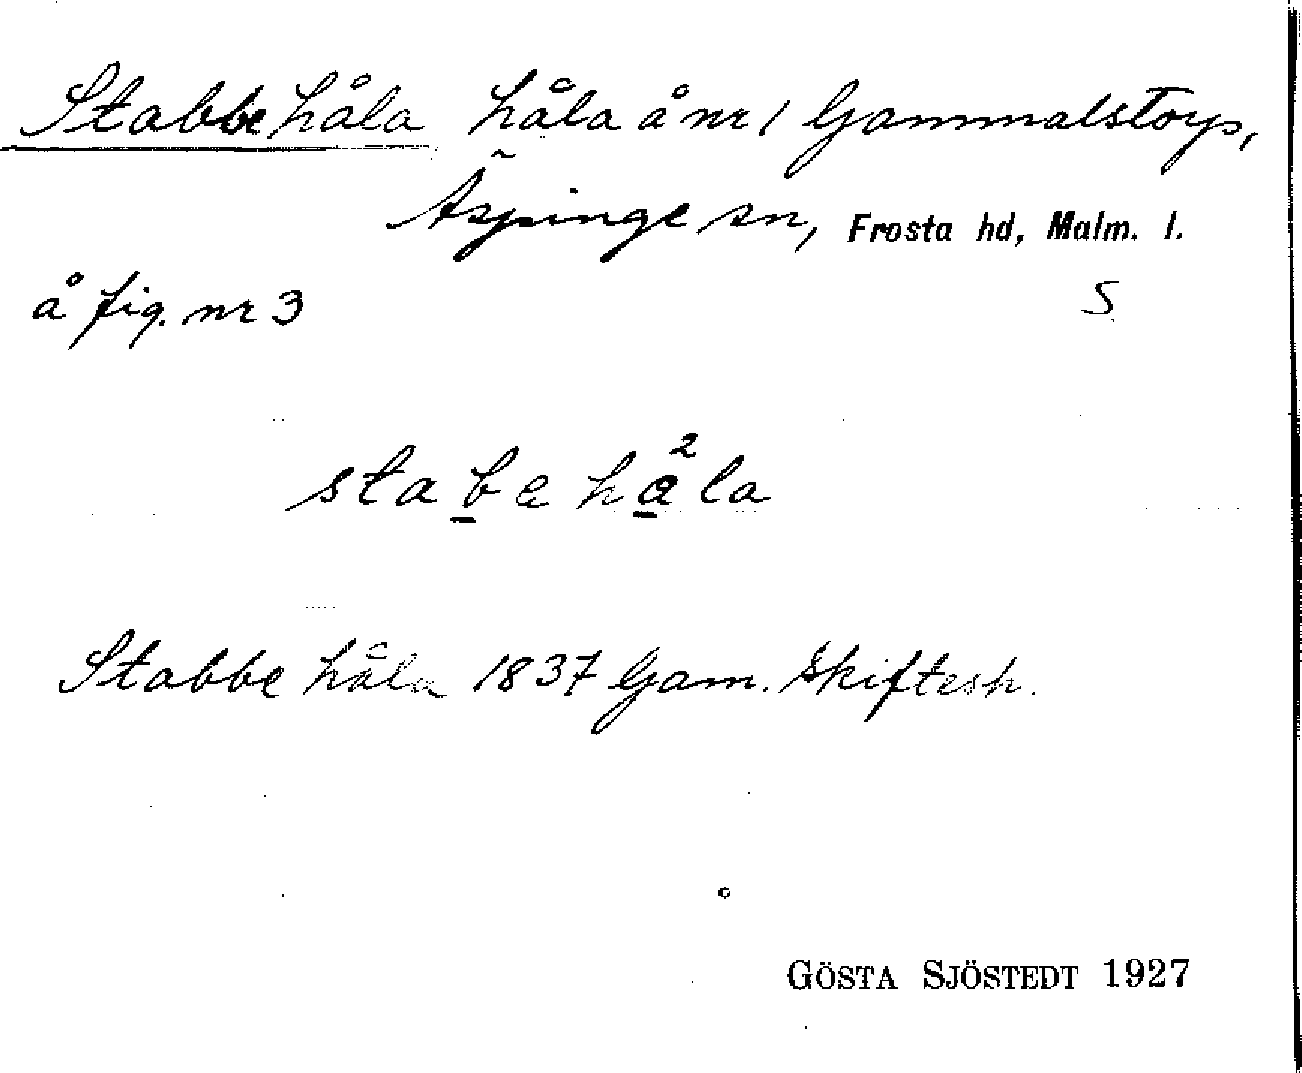 Stabbehåla håla å nr 1 Gammalstorp,
Äspinge sn, Frosta hd, Malm. l.
å fig. nr 3 S
stabehåla 2
Stabbe håla 1837 Gam. Skiftesh.
GÖSTA SJÖSTEDT 1927